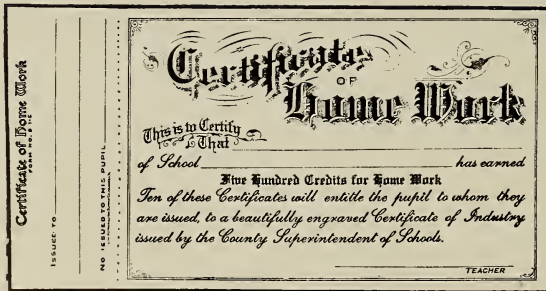 Certificate of Home Work
FORM NO.
ISSUED TO
NO ISSUED TO THIS PUPIL
Certificate
OF
Home Work
This is to Certify
That
of School has earned
Five Hundred Credits for Home Work
Ten of these Certificates will entitle the pupil to whom they
are issued, to a beautifully engraved Certificate of Industry
issued by the County Superintendent of Schools.
TEACHER